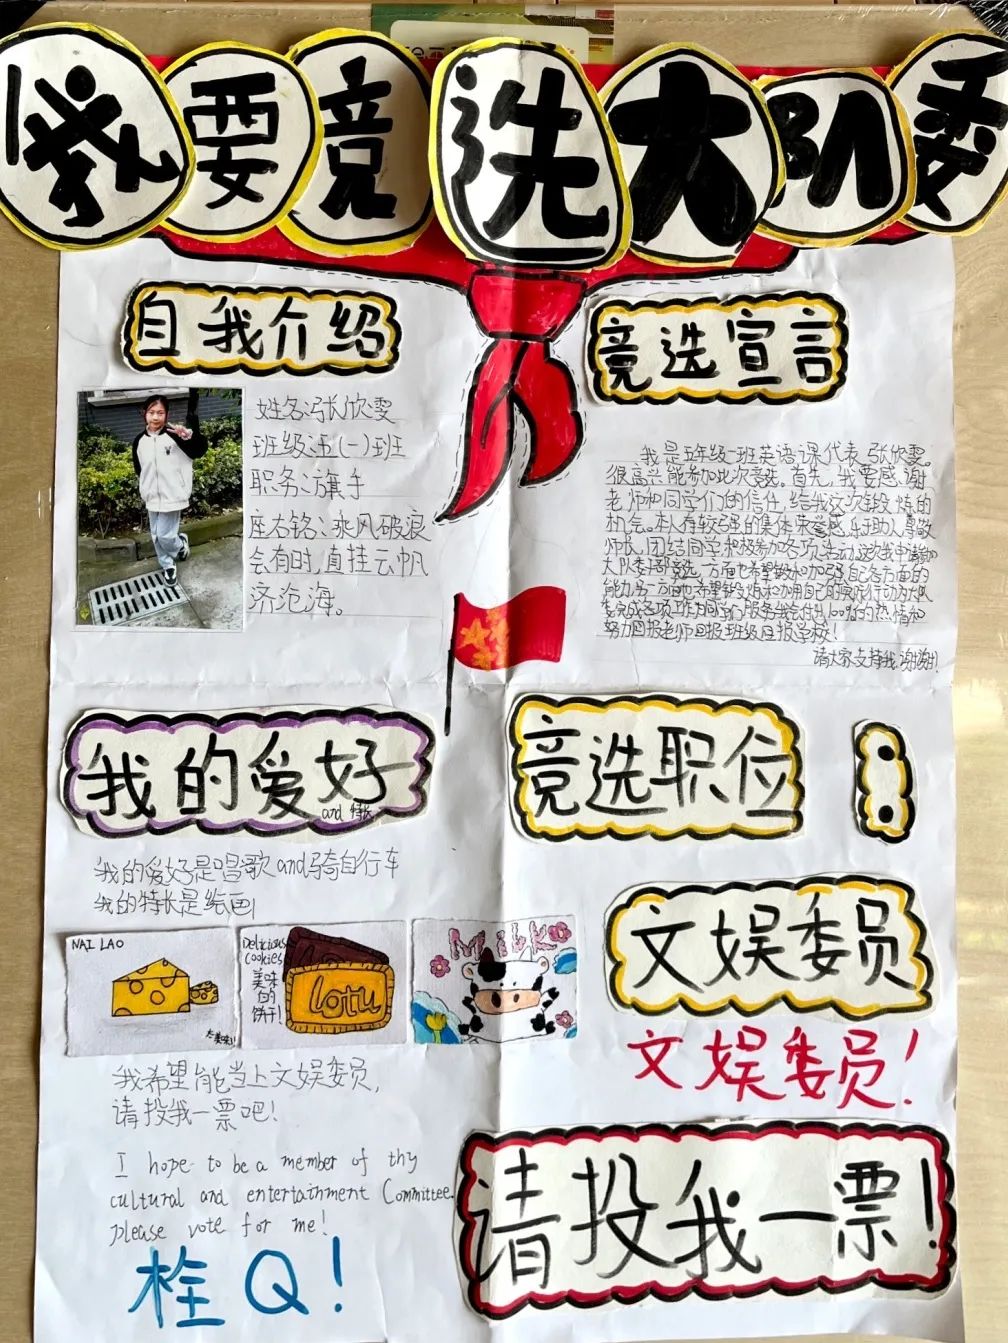 我要竞选大队委
自我介绍
姓名:张欣雯
班级:五(一)班
职务:旗手
座右铭:乘风破浪
会有时,直挂云帆
济沧海。
竞选宣言
我是五年级一班英语课代表张欣雯,
很高兴能参加此次竞选。首先,我要感谢
老师和同学们的信任,给我这次锻炼的
机会。本人有较强的集体荣誉感,乐于助人,尊敬
师长,团结同学积极参加各项活动这次我申请参加
大队委部竞选,一方面也希望锻炼和加强自己各方面的
能力另一方面也希望
努力回报老师回报班级回报学校!
请大家支持我,谢谢!
我的爱好
and 特长
我的爱好是唱歌and骑自行车
我的特长是绘画!
NAI LAO
太美味!!
Delicious
Cookies
美味的饼干!
lotu
MiLK
我希望能当上文娱委员,
请投我一票吧!
I hope to be a member of thy
cultural and entertainment Committee.
please vote for me!
栓Q!
竞选职位:
文娱委员
文娱委员!
请投我一票!